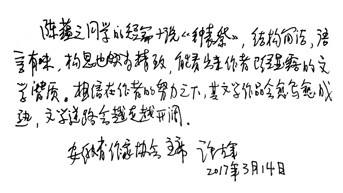 陈蕴之同学的短篇小说《种青祭》，结构简洁，语
言有味，构思也颇有精致，能看出作者已显露的文
学潜质。相信在作者的努力之下，其文学作品会愈写愈成
熟，文学道路会越走越开阔。
安徽省作家协会主席 许辉
2017年3月14日